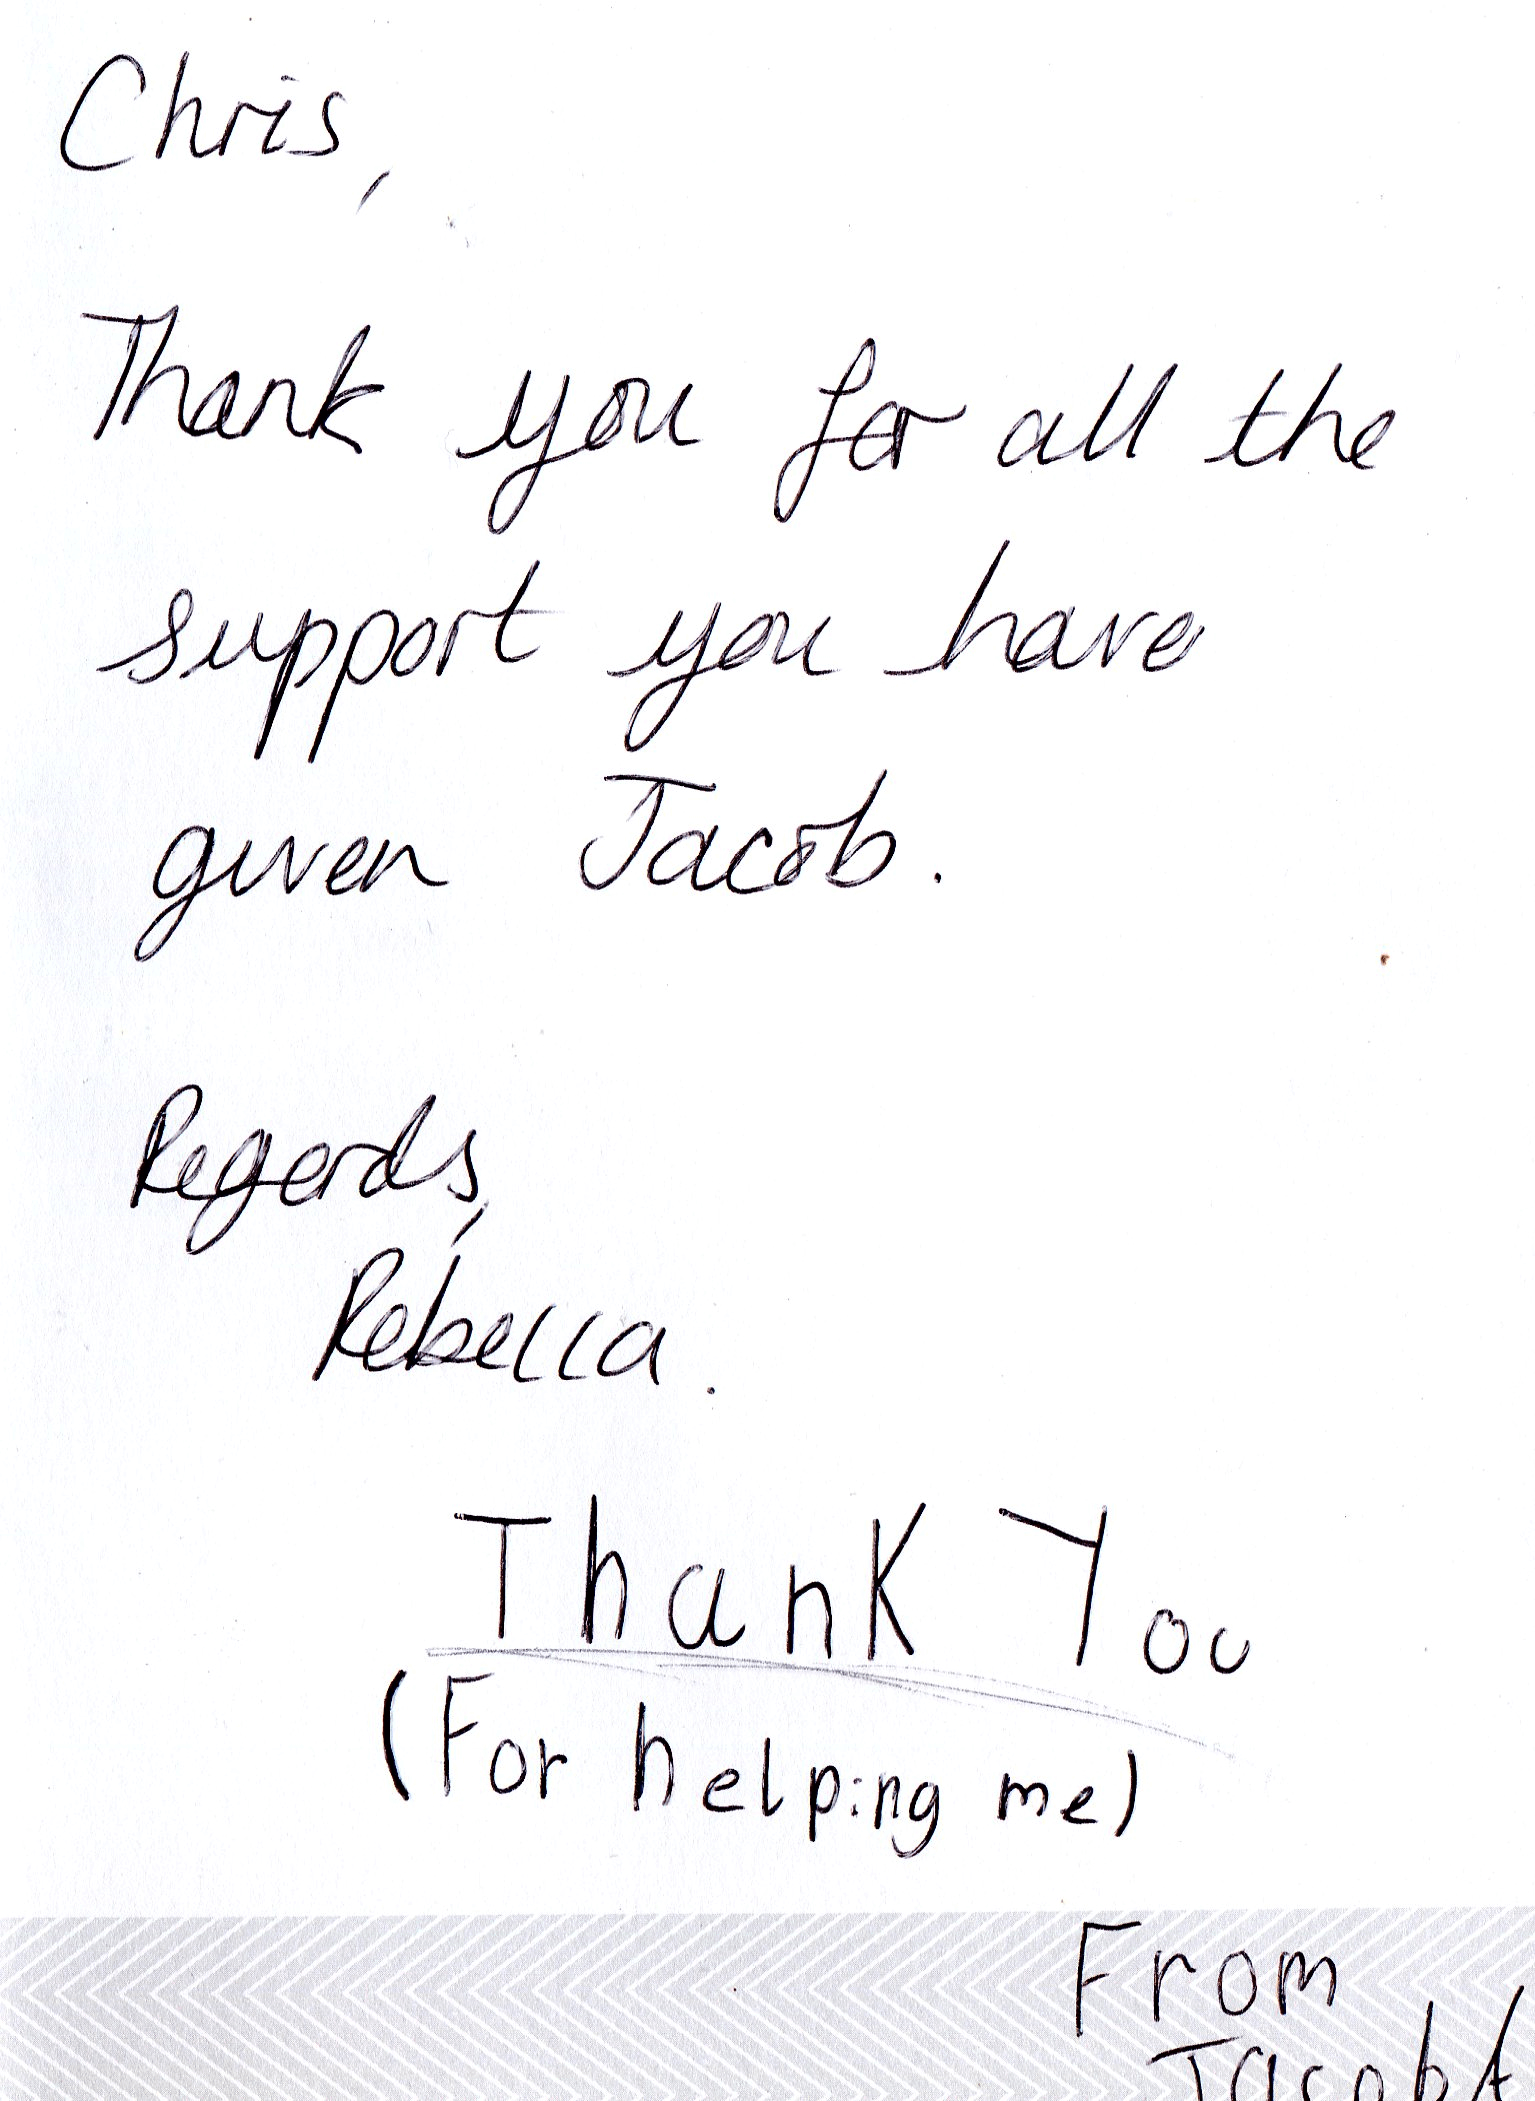 Chris,
Thank you for all the
support you have
given Jacob.
Regards,
Rebecca.
Thank You
(For helping me)
From
Jacob